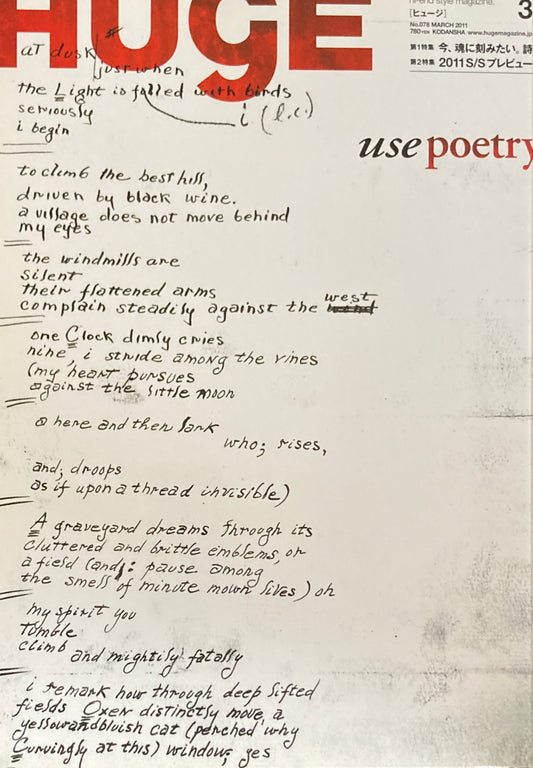 HUGE
hi-end style magazine.
3
[ヒュージ]
No.078 MARCH 2011
780YEN KODANSHA www.hugemagazine.jp
第1特集 今、魂に刻みたい。詩
第2特集 2011S/Sプレビュー
use poetry
at dusk #
just when
the Light is filled with birds
i (l.c.)
seriously
i begin
to climb the best hill,
driven by black wine.
a village does not move behind
my eyes
the windmills are
silent
their flattened arms
complain steadily against the west
one Clock dimly cries
nine, i stride among the vines
(my heart pursues
against the little moon
a here and then lark
who; rises,
and; droops
as if upon a thread invisible)
A graveyard dreams through its
cluttered and brittle emblems, or
a field (and; pause among
the smell of minute mown lives) oh
my spirit you
tumble
climb
and mightily fatally
i remark how through deep lifted
fields Oxen distinctly move, a
yellowandbluish cat (perched why
Curvingly at this) window; yes